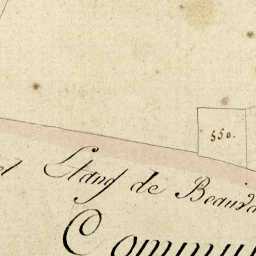 550.
Etang de Beauva
Commu